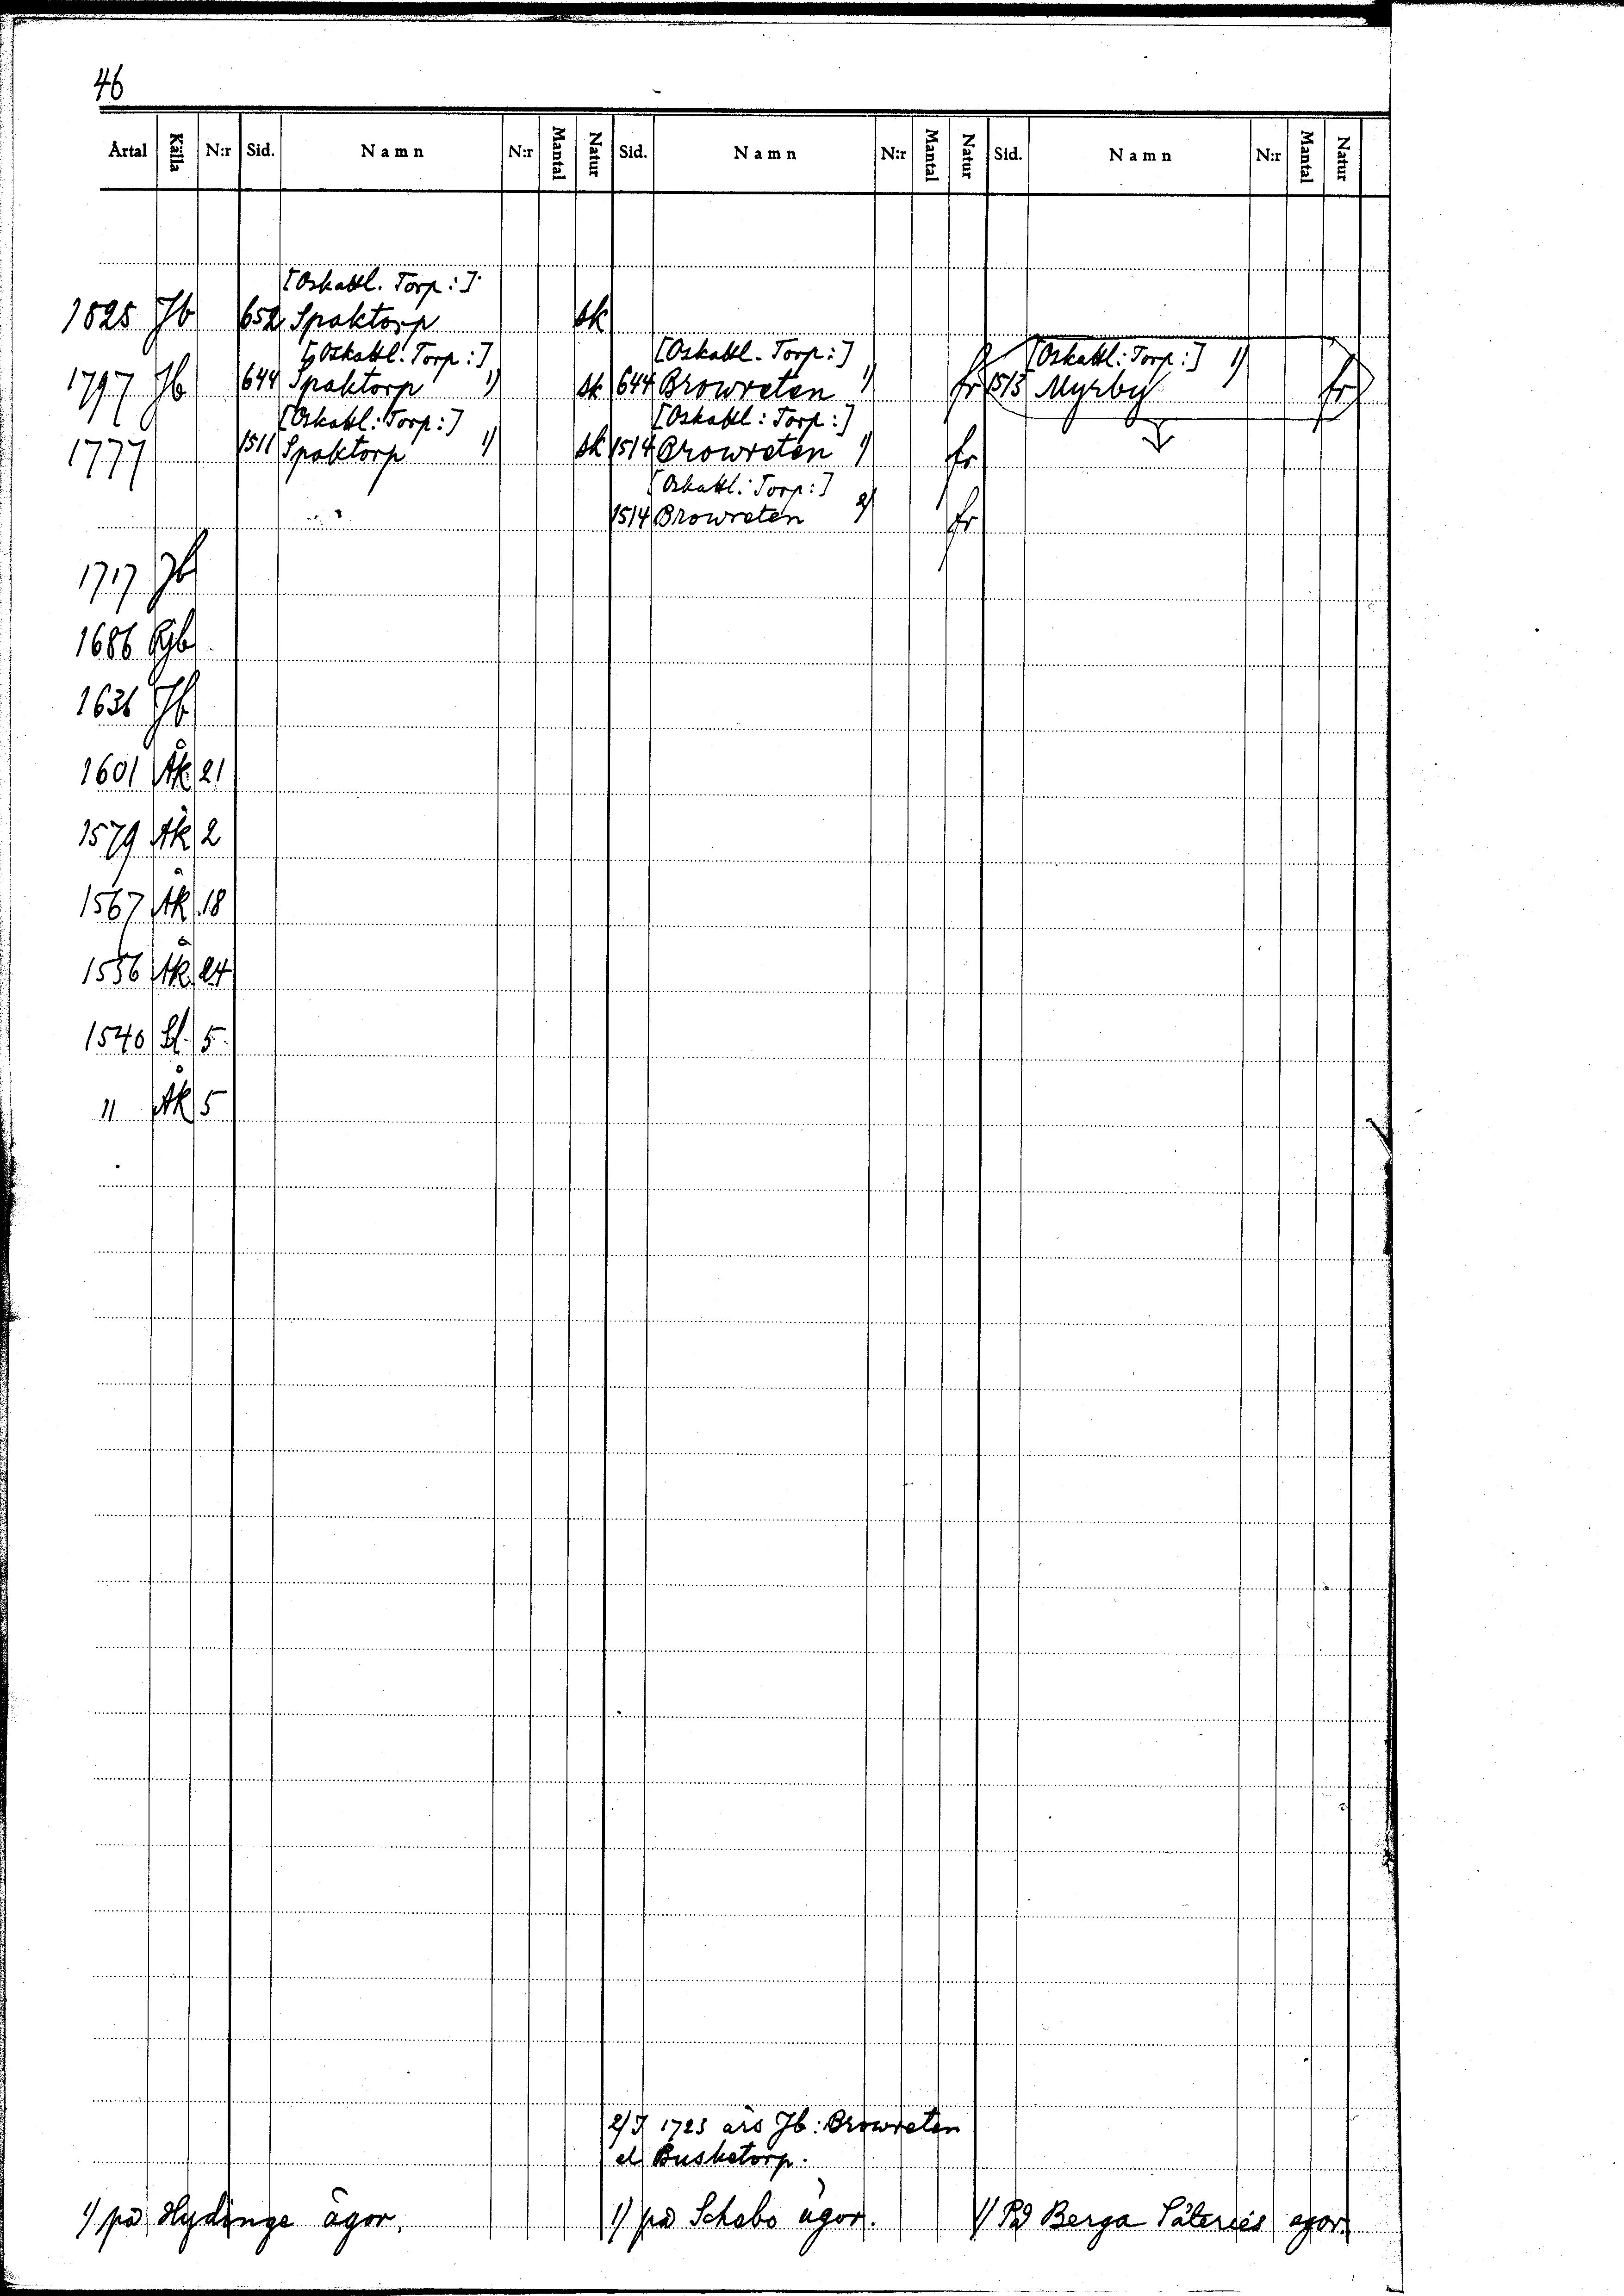 46
Årtal Källa N:r Sid. Namn N:r Mantal Natur Sid. Namn N:r Mantal Natur Sid. Namn N:r Mantal Natur
[Oskattl. Torp:]
1825 Jb 652 Spaktorp sk
[Oskattl: Torp:] [Oskattl. Torp:] [Oskattl: Torp:] 1)
1797 Jb 644 Spaktorp 1) sk 644 Browreten 1) fr 1513 Myrby fr
[Oskattl: Torp:] [Oskattl: Torp:]
1777 1511 Spaktorp 1) sk 1514 Browreten 1) fr
[Oskattl: Torp:]
1514 Browreten 2) fr
1717 Jb
1686 Rgb
1636 Jb
1601 Åk 21
1579 Åk 2
1567 Åk 18
1556 Åk 24
1540 Sl. 5
" Åk 5
2/ I 1723 års Jb: Browreten
el Busketorp.
1/ på Hydinge ägor. 1) på Schebo ägor. 1/ På Berga Säteries egor.